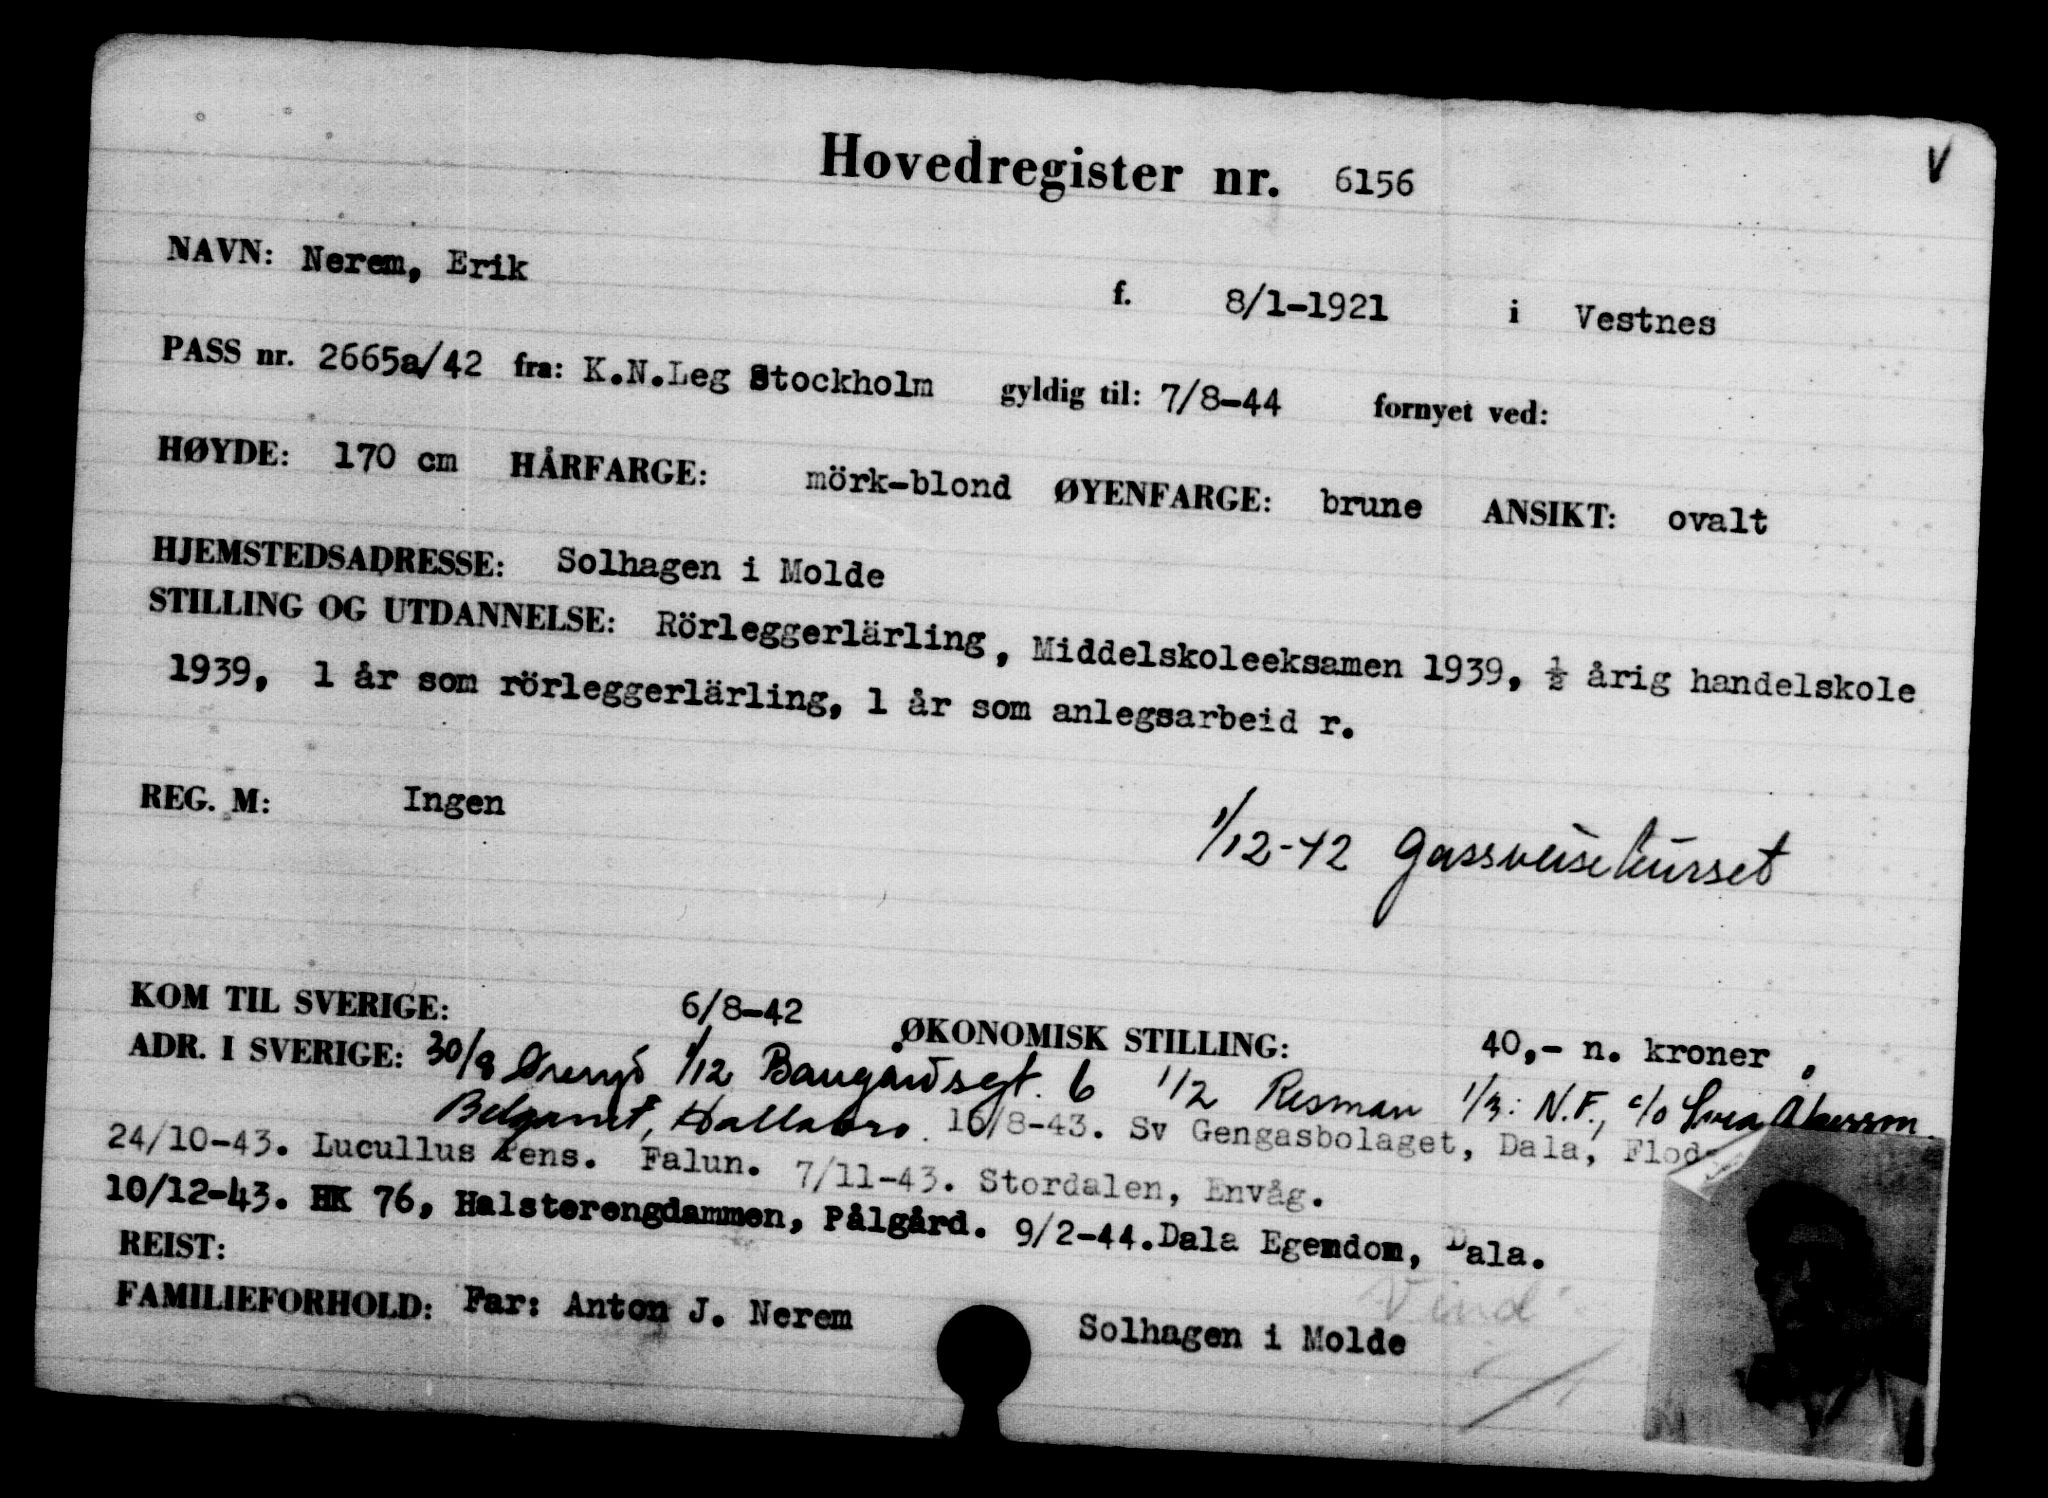 Hovedregister nr. 6156
V
NAVN: Nerem, Erik f. 8/1-1921 i Vestnes
PASS nr. 2665a/42 fra: K.N.Leg Stockholm gyldig til: 7/8-44 fornyet ved:
HØYDE: 170 cm HÅRFARGE: mörk-blond ØYENFARGE: brune ANSIKT: ovalt
HJEMSTEDSADRESSE: Solhagen i Molde
STILLING OG UTDANNELSE: Rörleggerlärling, Middelskoleeksamen 1939, ½ årig handelskole
1939, 1 år som rörleggerlärling, 1 år som anlegsarbeid r.
REG. M: Ingen
1/12-42 Gassveisekurset
KOM TIL SVERIGE: 6/8-42 ØKONOMISK STILLING: 40,- n. kroner .
ADR. I SVERIGE: 30/8 1/12 Baugårdsgt. 6 1/2 Resman 1/3: N.F., c/o Svea Åkesson.
Belganet, Hallabro. 16/8-43. Sv Gengasbolaget, Dala, Floda
24/10-43. Lucullus Pens. Falun. 7/11-43. Stordalen, Envåg.
10/12-43. HK 76, Halsterengdammen, Pålgård. 9/2-44. Dala Egendom, Dala.
REIST:
Vind
FAMILIEFORHOLD: Far: Anton J. Nerem Solhagen i Molde